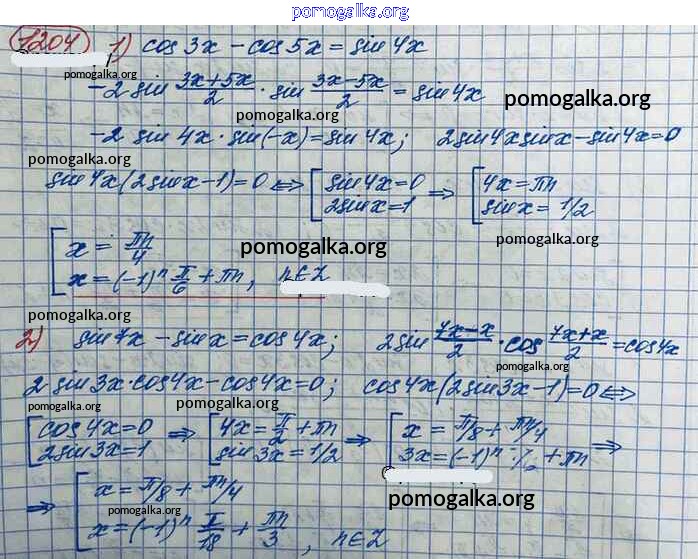 pomogalka.org
1204 1) cos 3x - cos 5x = sin 4x
pomogalka.org
-2 sin (3x+5x)/2 · sin (3x-5x)/2 = sin 4x
pomogalka.org
pomogalka.org
-2 sin 4x · sin(-x) = sin 4x; 2 sin 4x sin x - sin 4x = 0
pomogalka.org
sin 4x (2 sin x - 1) = 0 <=> [ sin 4x = 0 => [ 4x = πn
2 sin x = 1 sin x = 1/2
pomogalka.org
[ x = πn/4
pomogalka.org
x = (-1)^n π/6 + πn, n∈Z
pomogalka.org
2) sin 7x - sin x = cos 4x; 2 sin (7x-x)/2 · cos (7x+x)/2 = cos 4x
pomogalka.org
2 sin 3x · cos 4x - cos 4x = 0; cos 4x (2 sin 3x - 1) = 0 <=>
pomogalka.org pomogalka.org
[ cos 4x = 0 => [ 4x = π/2 + πn => [ x = π/8 + πn/4 =>
2 sin 3x = 1 sin 3x = 1/2 3x = (-1)^n · π/6 + πn
=> [ x = π/8 + πn/4
pomogalka.org
x = (-1)^n π/18 + πn/3, n∈Z
pomogalka.org